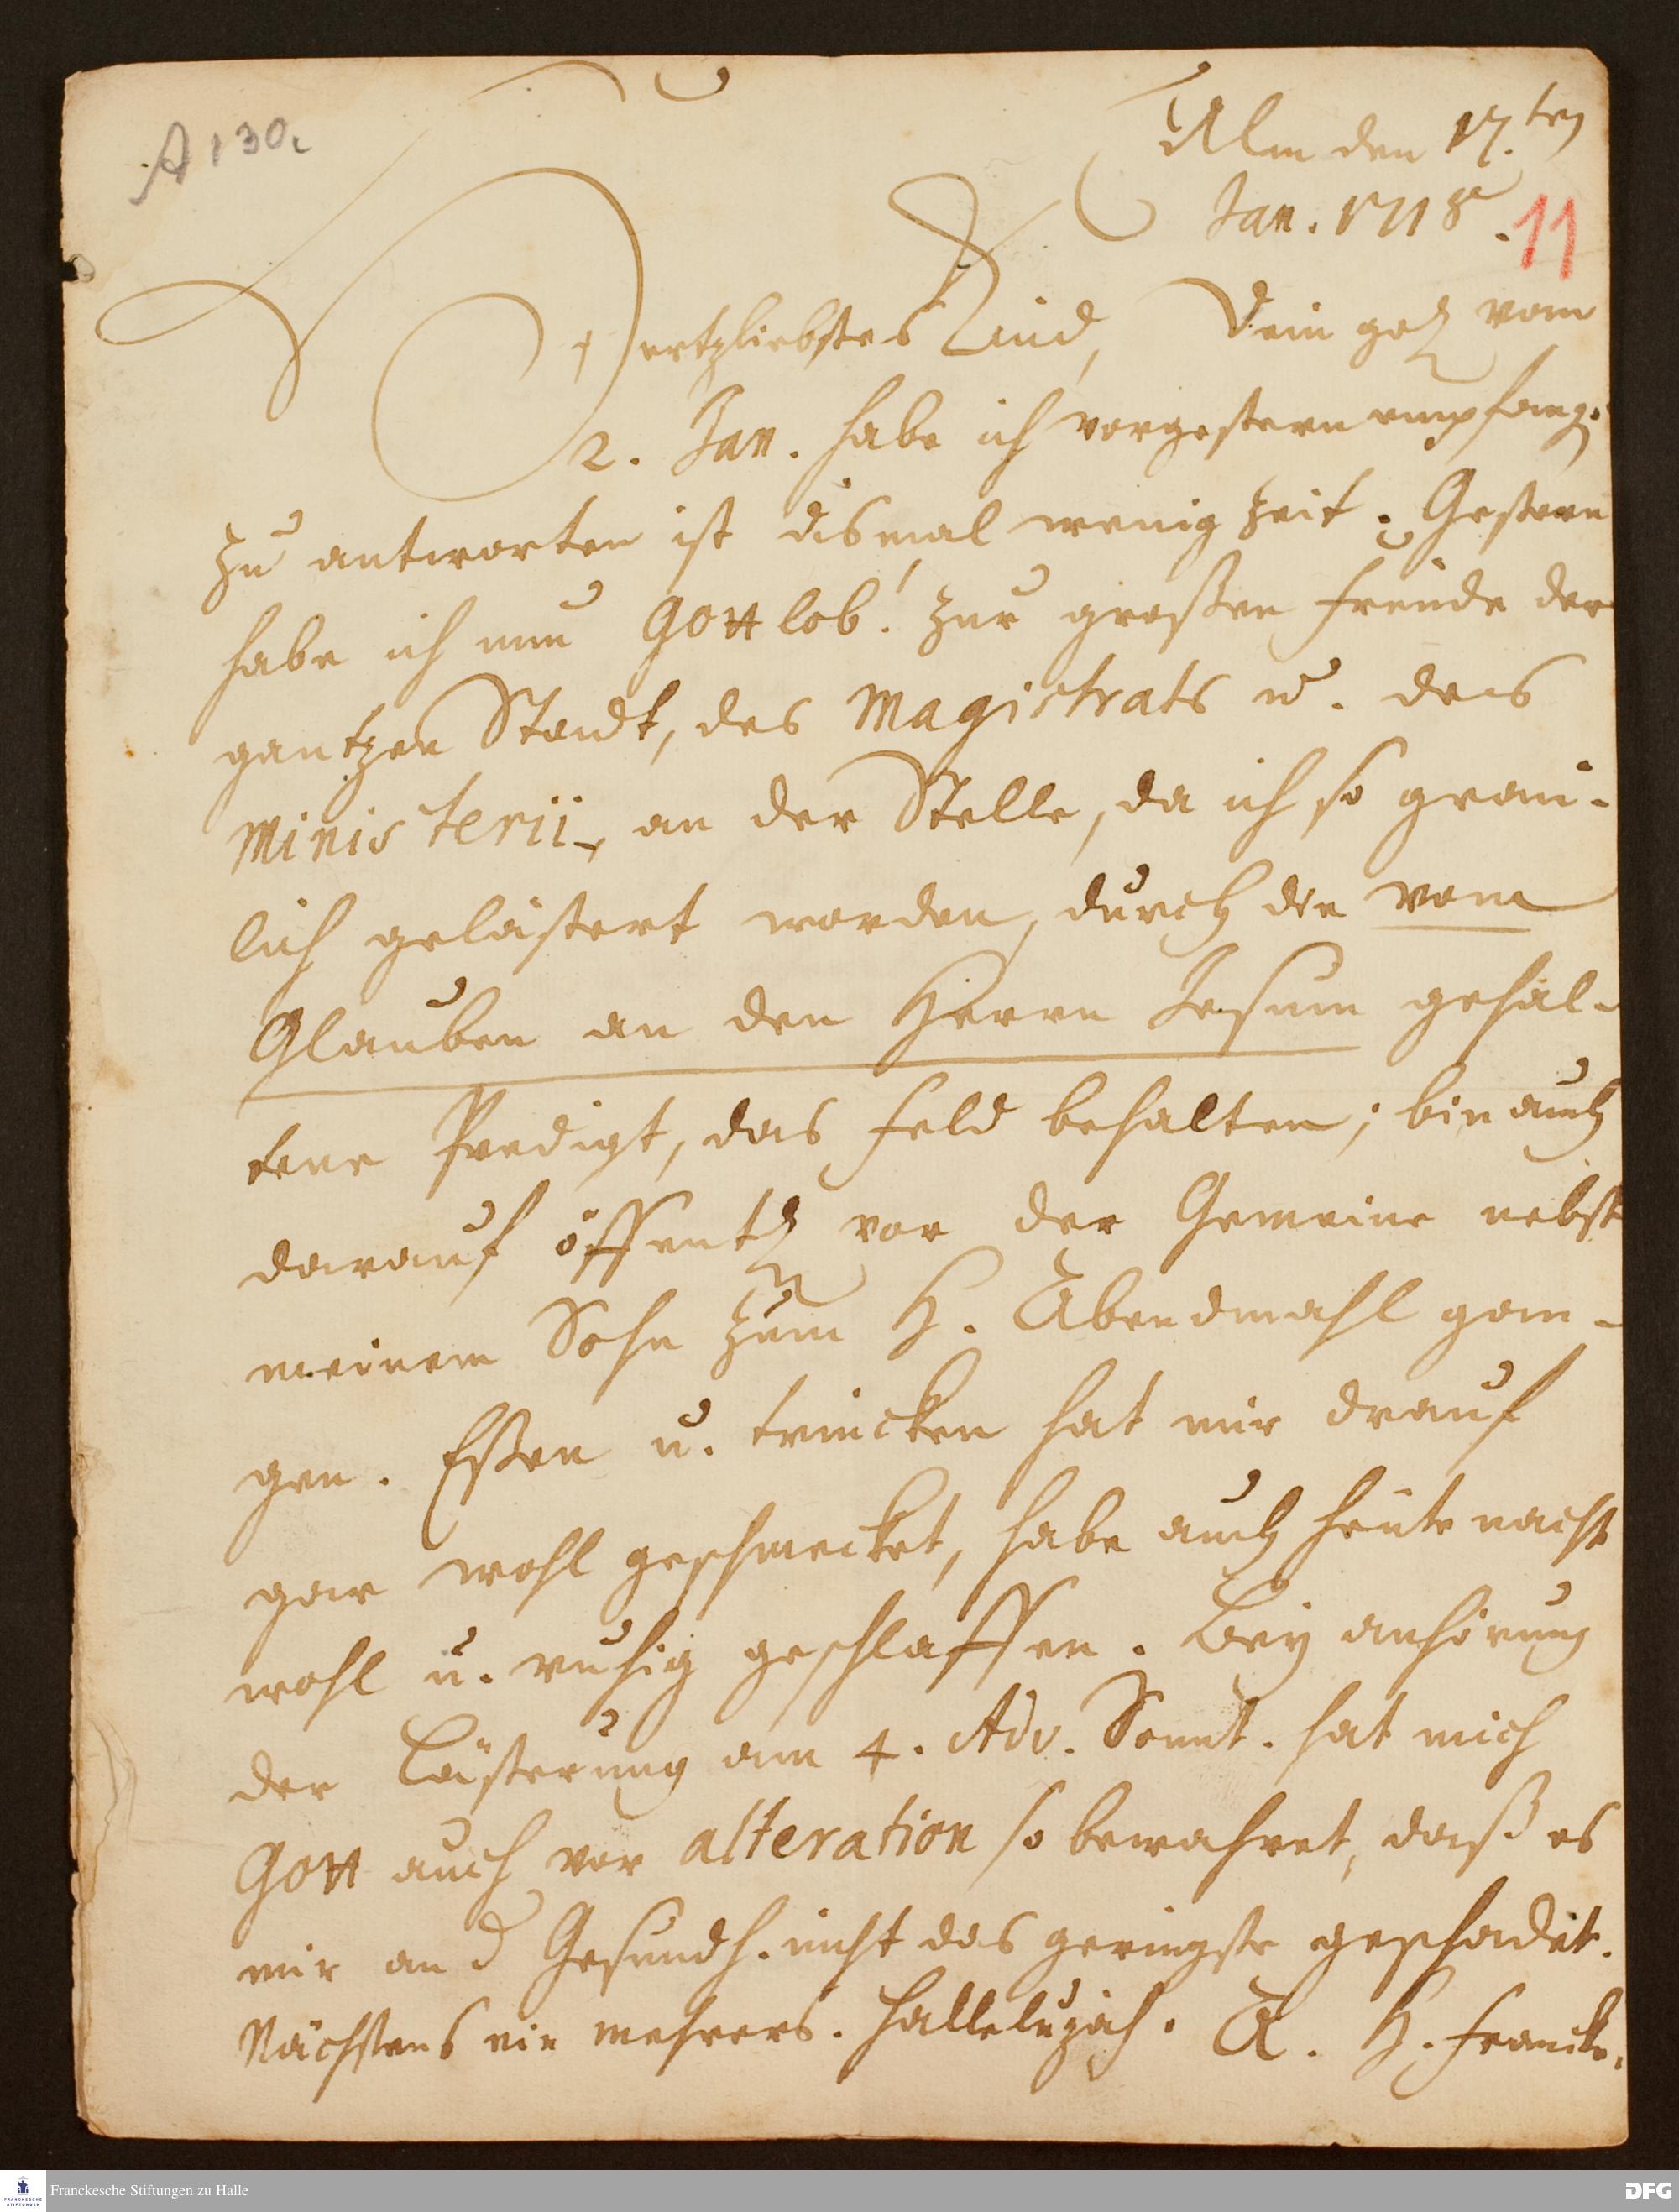 A 130.
Ulm den 17.ten
Jan. 1718.
11
Hertzliebstes Kind, Dein
vom
2. Jan. habe ich vorgestern empfang.
Zu antworten ist dismal wenig Zeit. Gestern
habe ich nun Gott lob! zur großen Freude der
gantzen Stadt, des Magistrats u. des
Ministerii, an der Stelle, da ich so greu-
lich gelästert worden, durch die vom
Glauben an den Herrn Jesum gehal-
tene Predigt, das Feld behalten; bin auch
darauf öffentl. vor der Gemeine nebst
meinem Sohn zum H. Abendmahl gan-
gen. Eßen u. trincken hat mir drauf
gar wohl geschmecket, habe auch heute nacht
wohl u. ruhig geschlaffen. Bey anhörung
der Lästerung am 4. Adv. Sonnt. hat mich
Gott auch vor alteration so bewahret, daß es
mir an d Gesundh. nicht das geringste geschadet.
Nächstens ein mehrers. Hallelujah. A. H. Francke.
Franckesche Stiftungen zu Halle
FRANCKESCHE STIFTUNGEN
DFG